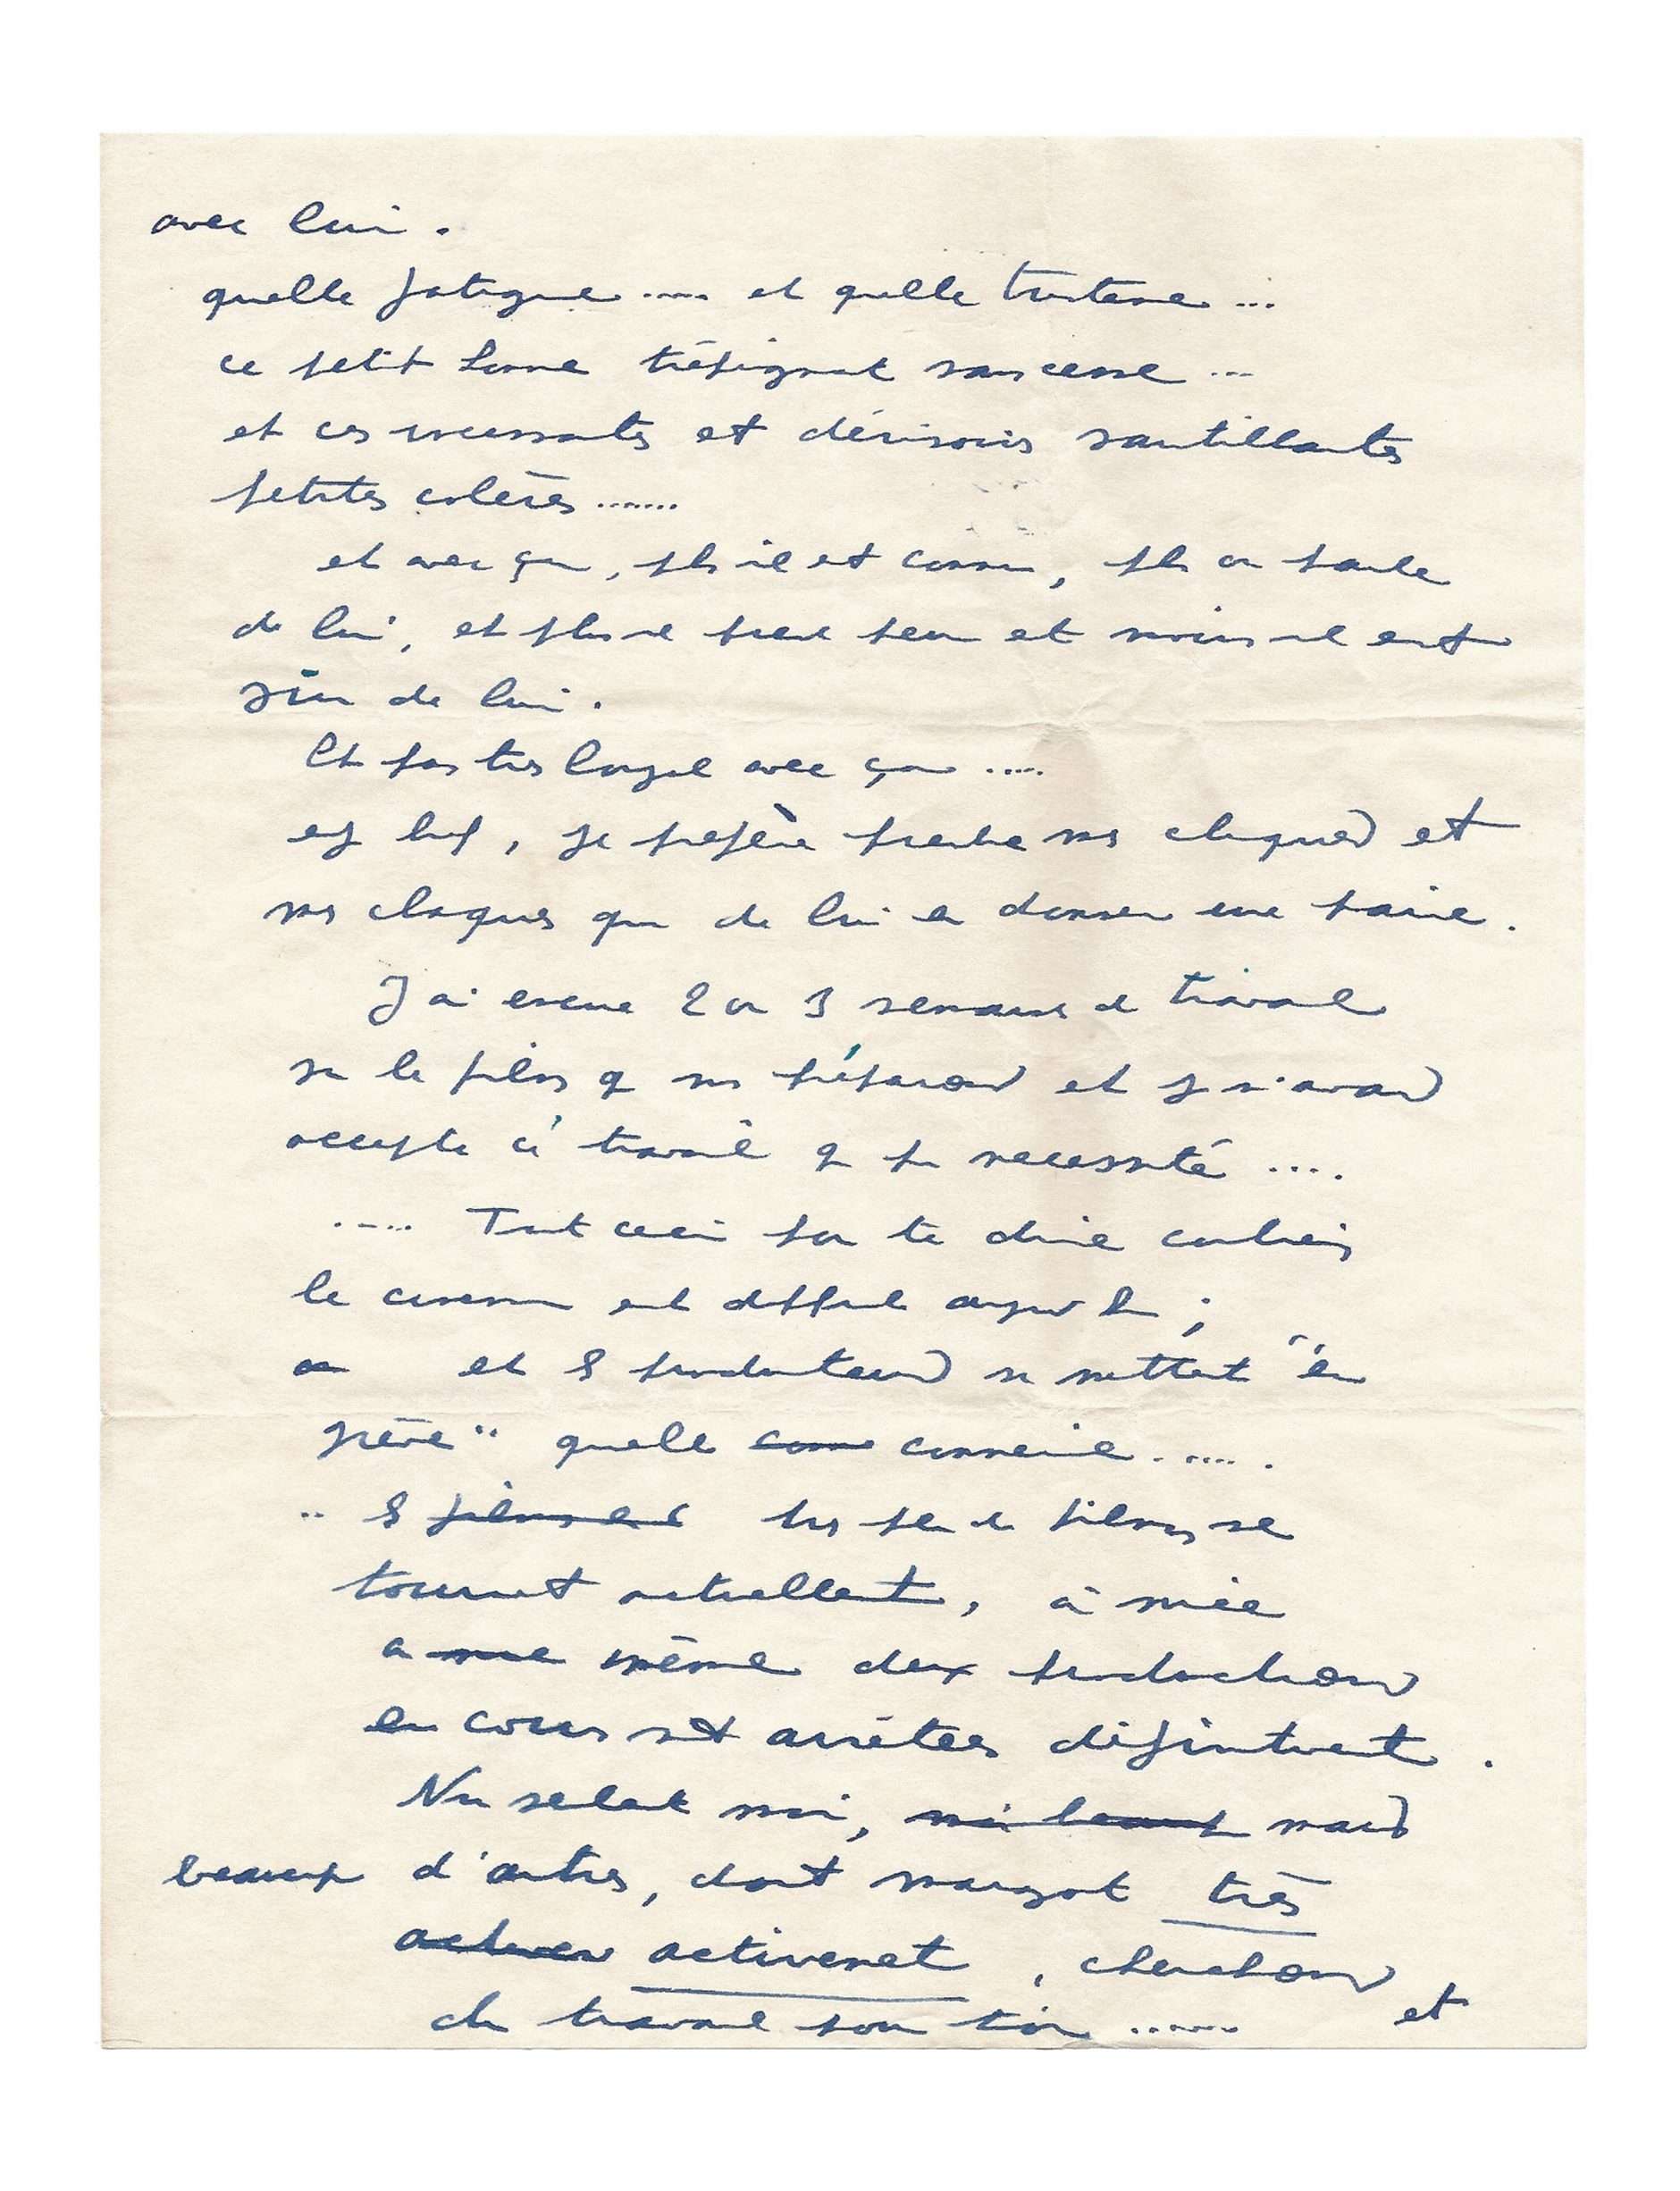 avec lui.
quelle fatigue ..... et quelle tristesse ...
ce petit homme trépignant sans cesse ...
et ces incessantes et dérisoires sautillantes
petites colères .......
et avec ça, plus il est connu, plus on parle
de lui, et plus il prend peur et moins il est
sûr de lui.
Et pas très loyal avec ça .....
enf bref, je préfère prendre mes cliques et
mes claques que de lui en donner une paire.
J'ai encore 2 ou 3 semaines de travail
sur le film que nous préparons et je n'avais
accepté ce travail que par nécessité ....
..... Tout ceci pour te dire combien
le cinéma est difficile aujourd'hui ;
et les producteurs se mettent "en
grève" quelle conn connerie ......
.. les films se très peu de films se
tournent actuellement, à Nice
a même deux productions
en cours sont arrêtées définitivement.
Non seulement moi, ni beaucoup mais
beaucoup d'autres, dont Margot très
activement, cherchons
du travail pour toi ....... et